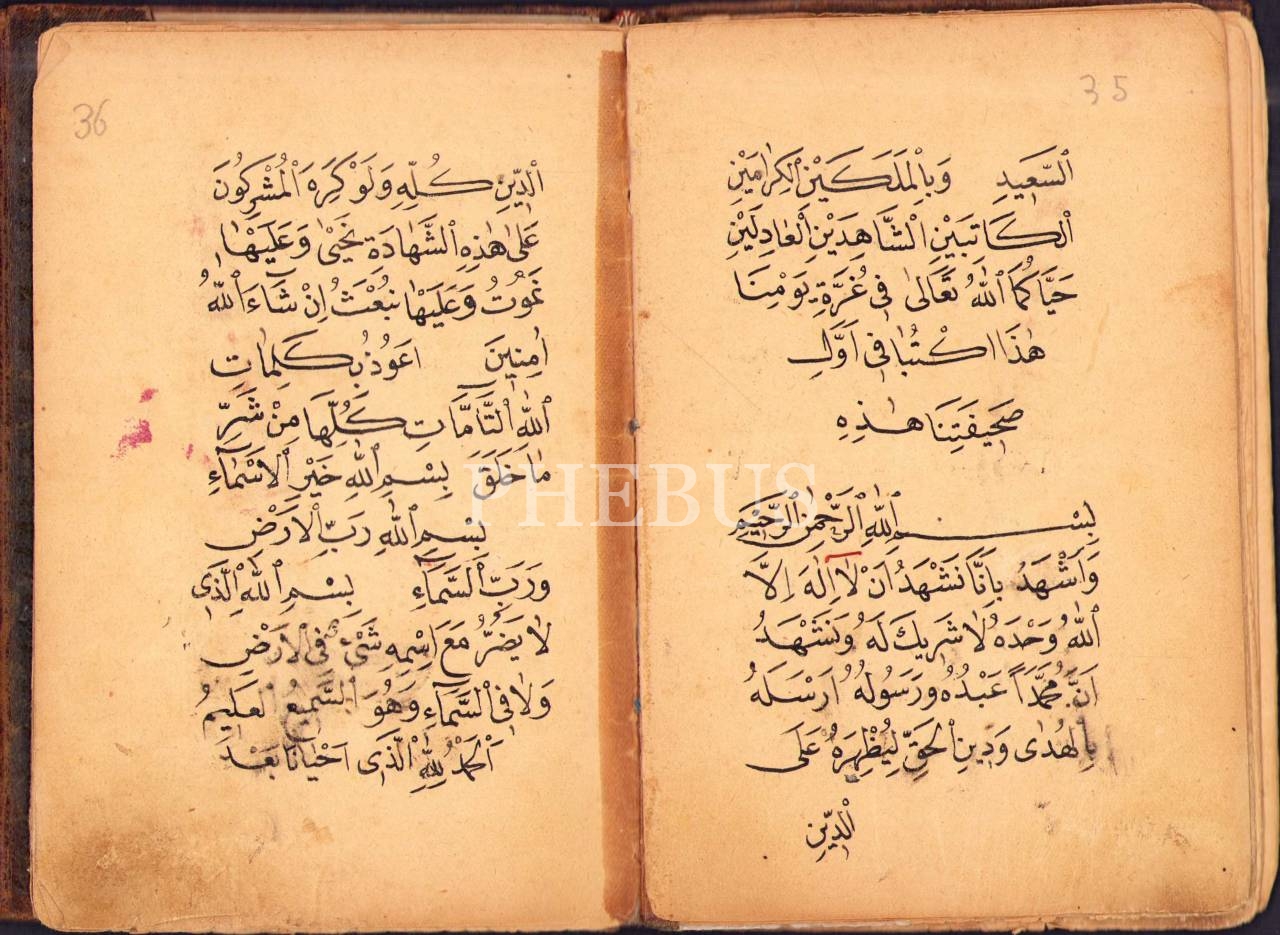 35
السَّعِيدِ وَبِالْمَلَكَيْنِ الْكِرَامَيْنِ
الْكَاتِبَيْنِ الشَّاهِدَيْنِ الْعَادِلَيْنِ
حَيَّاكُمَا اللهُ تَعَالَى فِي غُرَّةِ يَوْمِنَا
هٰذَا اكْتُبَا فِي أَوَّلِ
صَحِيفَتِنَا هٰذِهِ
بِسْمِ اللهِ الرَّحْمٰنِ الرَّحِيمِ
وَاشْهَدُ بِاَنَّا نَشْهَدُ اَنْ لَا اِلٰهَ اِلَّا
اللهُ وَحْدَهُ لَا شَرِيكَ لَهُ وَنَشْهَدُ
اَنَّ مُحَمَّدًا عَبْدُهُ وَرَسُولُهُ اَرْسَلَهُ
بِالْهُدٰى وَدِينِ الْحَقِّ لِيُظْهِرَهُ عَلَى
الدِّينِ
36
الدِّينِ كُلِّهِ وَلَوْ كَرِهَ الْمُشْرِكُونَ
عَلَى هٰذِهِ الشَّهَادَةِ نَحْيٰى وَعَلَيْهَا
نَمُوتُ وَعَلَيْهَا نُبْعَثُ اِنْ شَاءَ اللهُ
اٰمِنِينَ اَعُوذُ بِكَلِمَاتِ
اللهِ التَّامَّاتِ كُلِّهَا مِنْ شَرِّ
مَا خَلَقَ بِسْمِ اللهِ خَيْرِ الْاَسْمَاءِ
بِسْمِ اللهِ رَبِّ الْاَرْضِ
وَرَبِّ السَّمَاءِ بِسْمِ اللهِ الَّذِى
لَا يَضُرُّ مَعَ اسْمِهِ شَيْءٌ فِي الْاَرْضِ
وَلَا فِي السَّمَاءِ وَهُوَ السَّمِيعُ الْعَلِيمُ
اَلْحَمْدُ لِلّٰهِ الَّذِى اَحْيَانَا بَعْدَ
PHEBUS